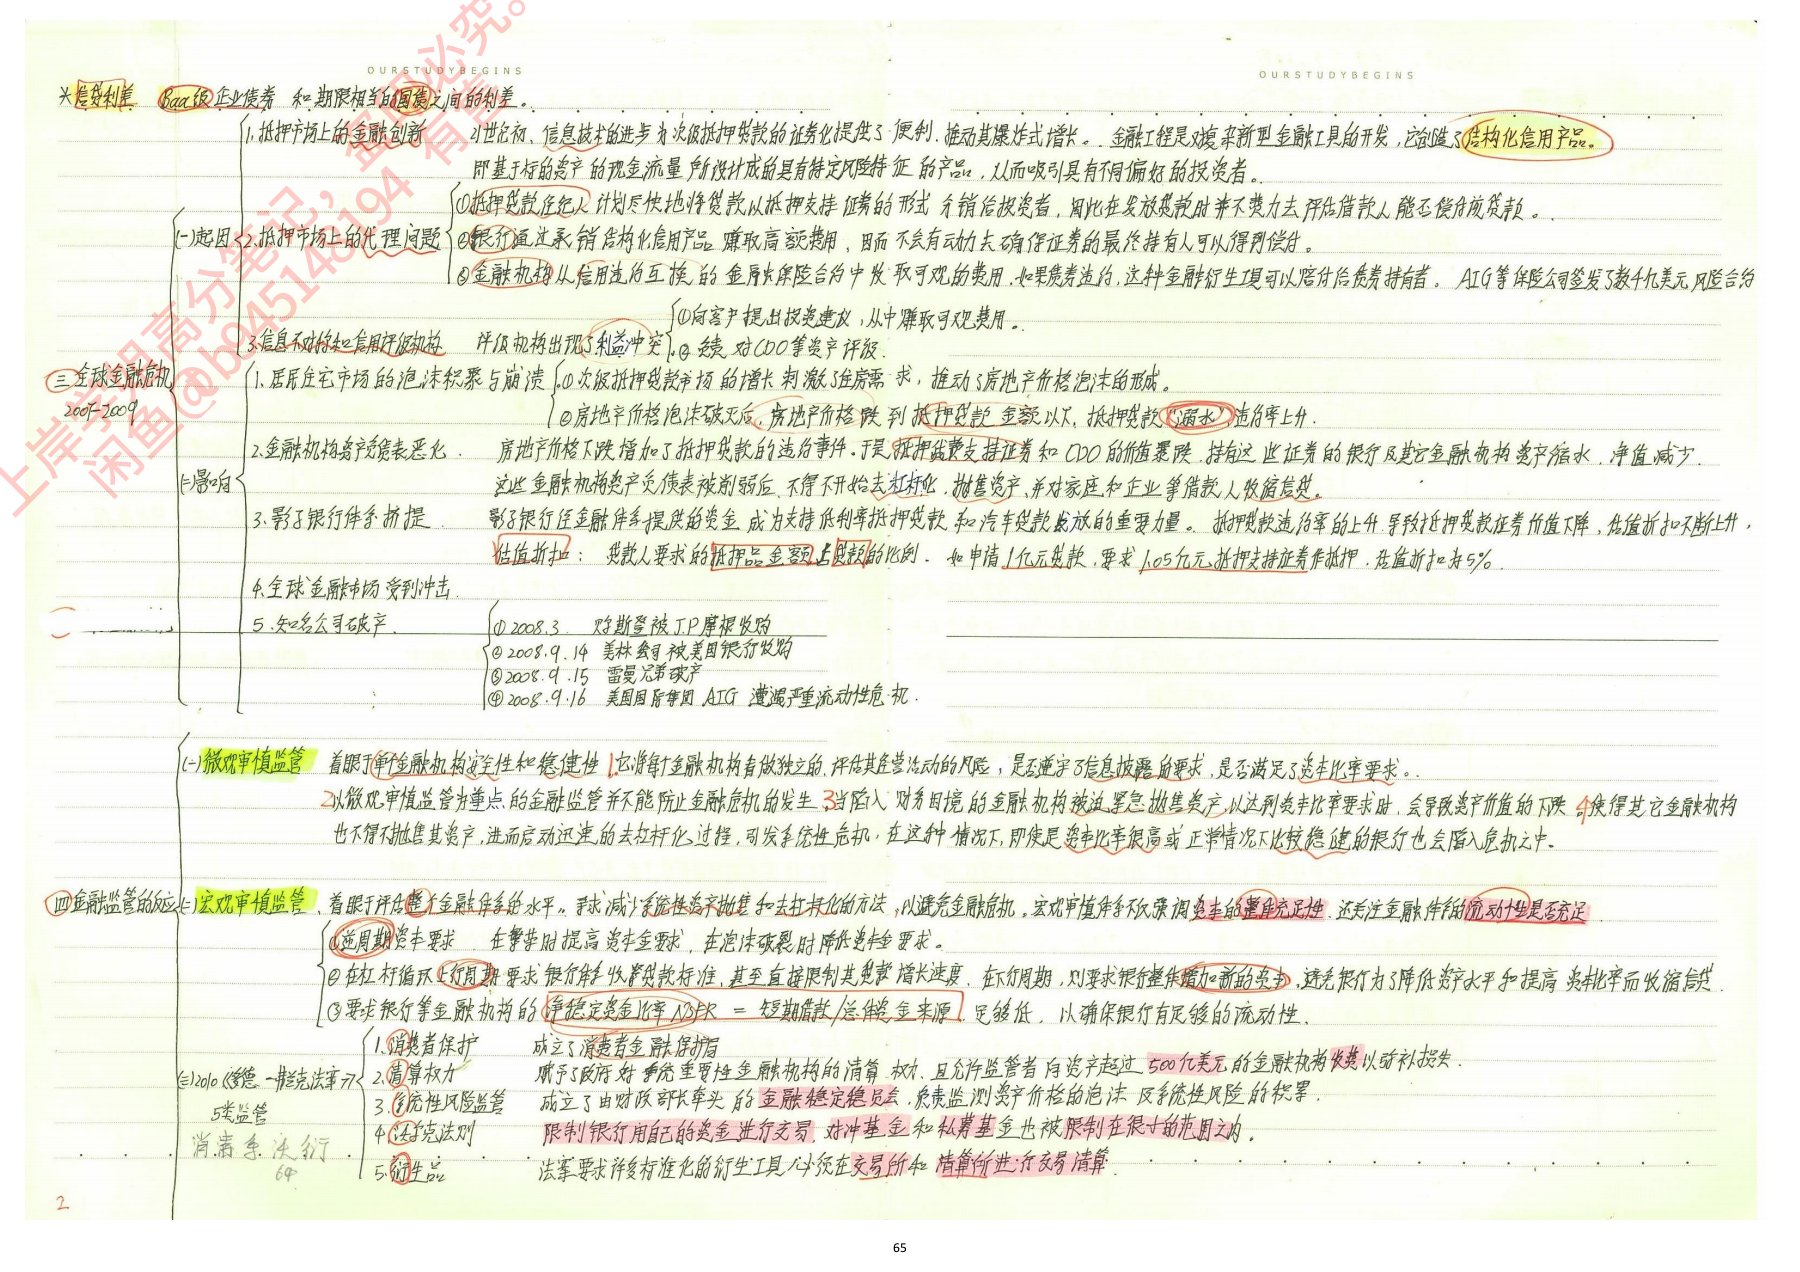 OURSTUDYBEGINS
OURSTUDYBEGINS
*信贷利差 Baa级企业债券 和期限相当的国债之间的利差。
1.抵押市场上的金融创新 21世纪初、信息技术的进步为次级抵押贷款的证券化提供了便利、推动其爆炸式增长。金融工程是对复杂新型金融工具的开发,它创造了结构化信用产品。
即基于标的资产的现金流量所设计成的具有特定风险特征的产品,从而吸引具有不同偏好的投资者。
(一)起因 2.抵押市场上的代理问题
①抵押贷款经纪人计划尽快地将贷款以抵押支持证券的形式分销给投资者,因此在发放贷款时并不费力去评估借款人能否偿付该贷款。
②银行通过承销结构化信用产品赚取高额费用,因而不会有动力去确保证券的最终持有人可以得到偿付。
③金融机构从信用违约互换的金融保险合约中收取可观的费用.如果债券违约,这种金融衍生工具可以赔付给债券持有者。AIG等保险公司签发了数千亿美元风险合约
3.信息不对称和信用评级机构 评级机构出现了利益冲突
①向客户提出投资建议,从中赚取可观费用。
②负责对CDO等资产评级.
三全球金融危机
2007-2009
(二)影响
1.居民住宅市场的泡沫积聚与崩溃
①次级抵押贷款市场的增长刺激了住房需求,推动了房地产价格泡沫的形成。
②房地产价格泡沫破灭后,房地产价格跌到抵押贷款金额以下,抵押贷款"溺水",违约率上升.
2.金融机构资产负债表恶化. 房地产价格下跌增加了抵押贷款的违约事件.于是抵押贷款支持证券和CDO的价值暴跌.持有这些证券的银行及其它金融机构资产缩水.净值减少.
这些金融机构资产负债表被削弱后.不得不开始去杠杆化.抛售资产、并对家庭和企业等借款人收缩信贷。
3.影子银行体系挤提. 影子银行经金融体系提供的资金成为支持低利率抵押贷款和汽车贷款发放的重要力量。抵押贷款违约率的上升导致抵押贷款证券价值下降,估值折扣不断上升,
估值折扣: 贷款人要求的抵押品金额占贷款的比例. 如申请1亿元贷款,要求1.05亿元抵押支持证券作抵押.估值折扣为5%.
4.全球金融市场受到冲击.
5.知名公司破产.
①2008.3 贝尔斯登被J.P摩根收购
②2008.9.14 美林公司被美国银行收购
③2008.9.15 雷曼兄弟破产
④2008.9.16 美国国际集团AIG遭遇严重流动性危机.
(一)微观审慎监管 着眼于单个金融机构安全性和稳健性 1.它将每个金融机构看做独立的.评估其经营活动的风险,是否遵守了信息披露的要求,是否满足了资本比率要求。
2以微观审慎监管为重点的金融监管并不能防止金融危机的发生 3当陷入财务困境的金融机构被迫紧急抛售资产,以达到资本比率要求时,会导致资产价值的下跌 4使得其它金融机构
也不得不抛售其资产,进而启动迅速的去杠杆化过程,引发系统性危机.在这种情况下,即使是资本比率很高或正常情况下比较稳健的银行也会陷入危机之中.
四金融监管的反应
(二)宏观审慎监管、着眼于评估整个金融体系的水平。寻求减少系统性资产抛售和去杠杆化的方法,以避免金融危机。宏观审慎体系不仅强调资本的整体充足性.还关注金融体系的流动性是否充足.
①逆周期资本要求. 在繁荣时提高资本金要求,在泡沫破裂时降低资本金要求。
②在杠杆循环上行周期要求银行体系收紧贷款标准,甚至直接限制其贷款增长速度.在下行周期,则要求银行整体增加新的资本,避免银行为了降低资产水平和提高资本比率而收缩信贷.
③要求银行等金融机构的净稳定资金比率NSFR = 短期借款/总体资金来源.足够低.以确保银行有足够的流动性.
(三)2010《多德-弗兰克法案》
5类监管
消清系沃衍
1.消费者保护 成立了消费者金融保护局
2.清算权力 赋予了政府对系统重要性金融机构的清算权力.且允许监管者向资产超过500亿美元的金融机构收费以弥补损失.
3.系统性风险监管 成立了由财政部长牵头的金融稳定稳员会.负责监测资产价格的泡沫及系统性风险的积累.
4.沃尔克法则 限制银行用自己的资金进行交易.对冲基金和私募基金也被限制在很小的范围之内.
5.衍生品 法案要求许多标准化的衍生工具必须在交易所和清算所进行交易清算.
64
2
65
上岸学姐高分笔记,盗图必究。
闲鱼@b945148194 有售